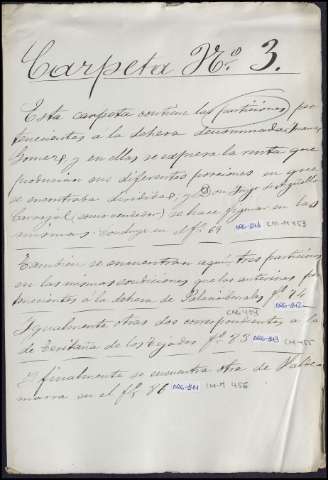 Carpeta Nº 3.
Esta carpeta contiene las particiones per
tenecientes a la dehesa denominada Juan
Gomez, y en ellas se expresa la renta que
producian sus diferentes porciones en que
se encontraba dividida; y Don Jorge
Carvajal, como se hace figurar en las
mismas: concluye en el fº 69 CM-M 453
Tambien se encuentran aqui tres particiones
en las mismas condiciones que las anteriores per
tenecientes a la dehesa de fº 76
Igualmente otras dos correspondientes a la
de de los Tejados fº 83 CM-M 455
Y finalmente se encuentra otra de
en el fº 86 CM-M 456